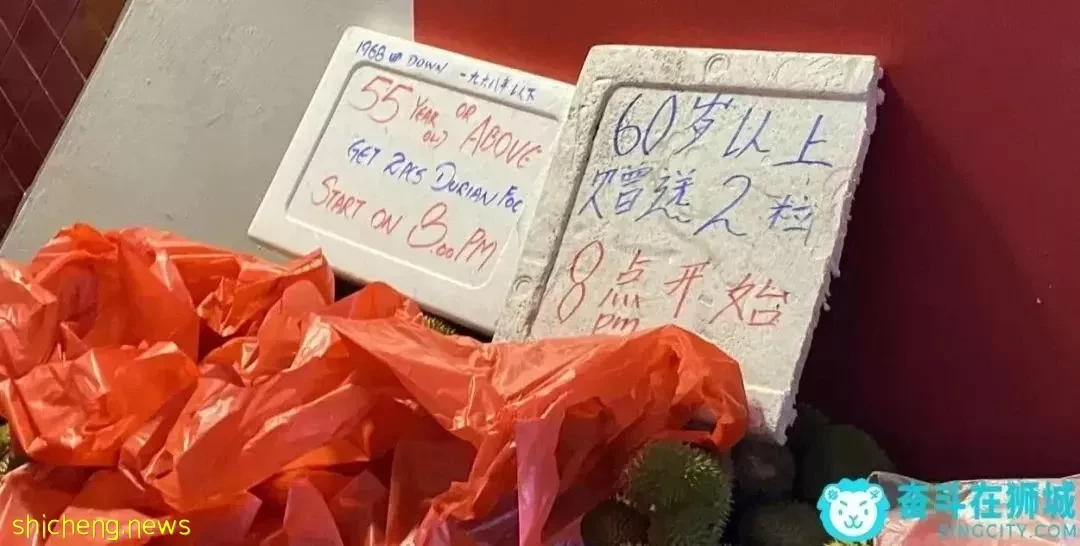 1968 UP DOWN 一九六八年以下
55 YEAR OLD OR ABOVE
GET 2PCS DURIAN FOC
START ON 8.00 PM
60岁以上
赠送2粒
8点开始
pm
shicheng.news
奋斗在狮城
SINGCITY.COM